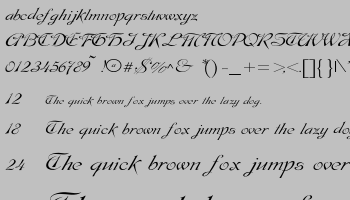 abcdefghijklmnopqrstuvwxyz
ABCDEFGHIJKLMNOPQRSTUVWX
0123456789 ~!@#$%^& *() -_ += >.<,[]{}|\
12 The quick brown fox jumps over the lazy dog.
18 The quick brown fox jumps over the lazy dog
24 The quick brown fox jumps over